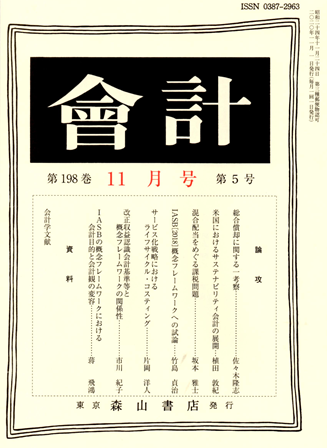 ISSN 0387-2963
會計
第198巻 11月号 第5号
論攻
総合償却に関する一考察……佐々木隆志
米国におけるサステナビリティ会計の展開…植田 敦紀
混合配当をめぐる課税問題……坂本 雅士
IASB[2018]概念フレームワークへの試論……竹島 貞治
サービス化戦略における
ライフサイクル・コスティング……片岡 洋人
改正収益認識会計基準等と
概念フレームワークの関係性……市川 紀子
資料
IASBの概念フレームワークにおける
会計目的と会計観の変容……蒋 飛鴻
会計学文献
東京 森山書店 発行